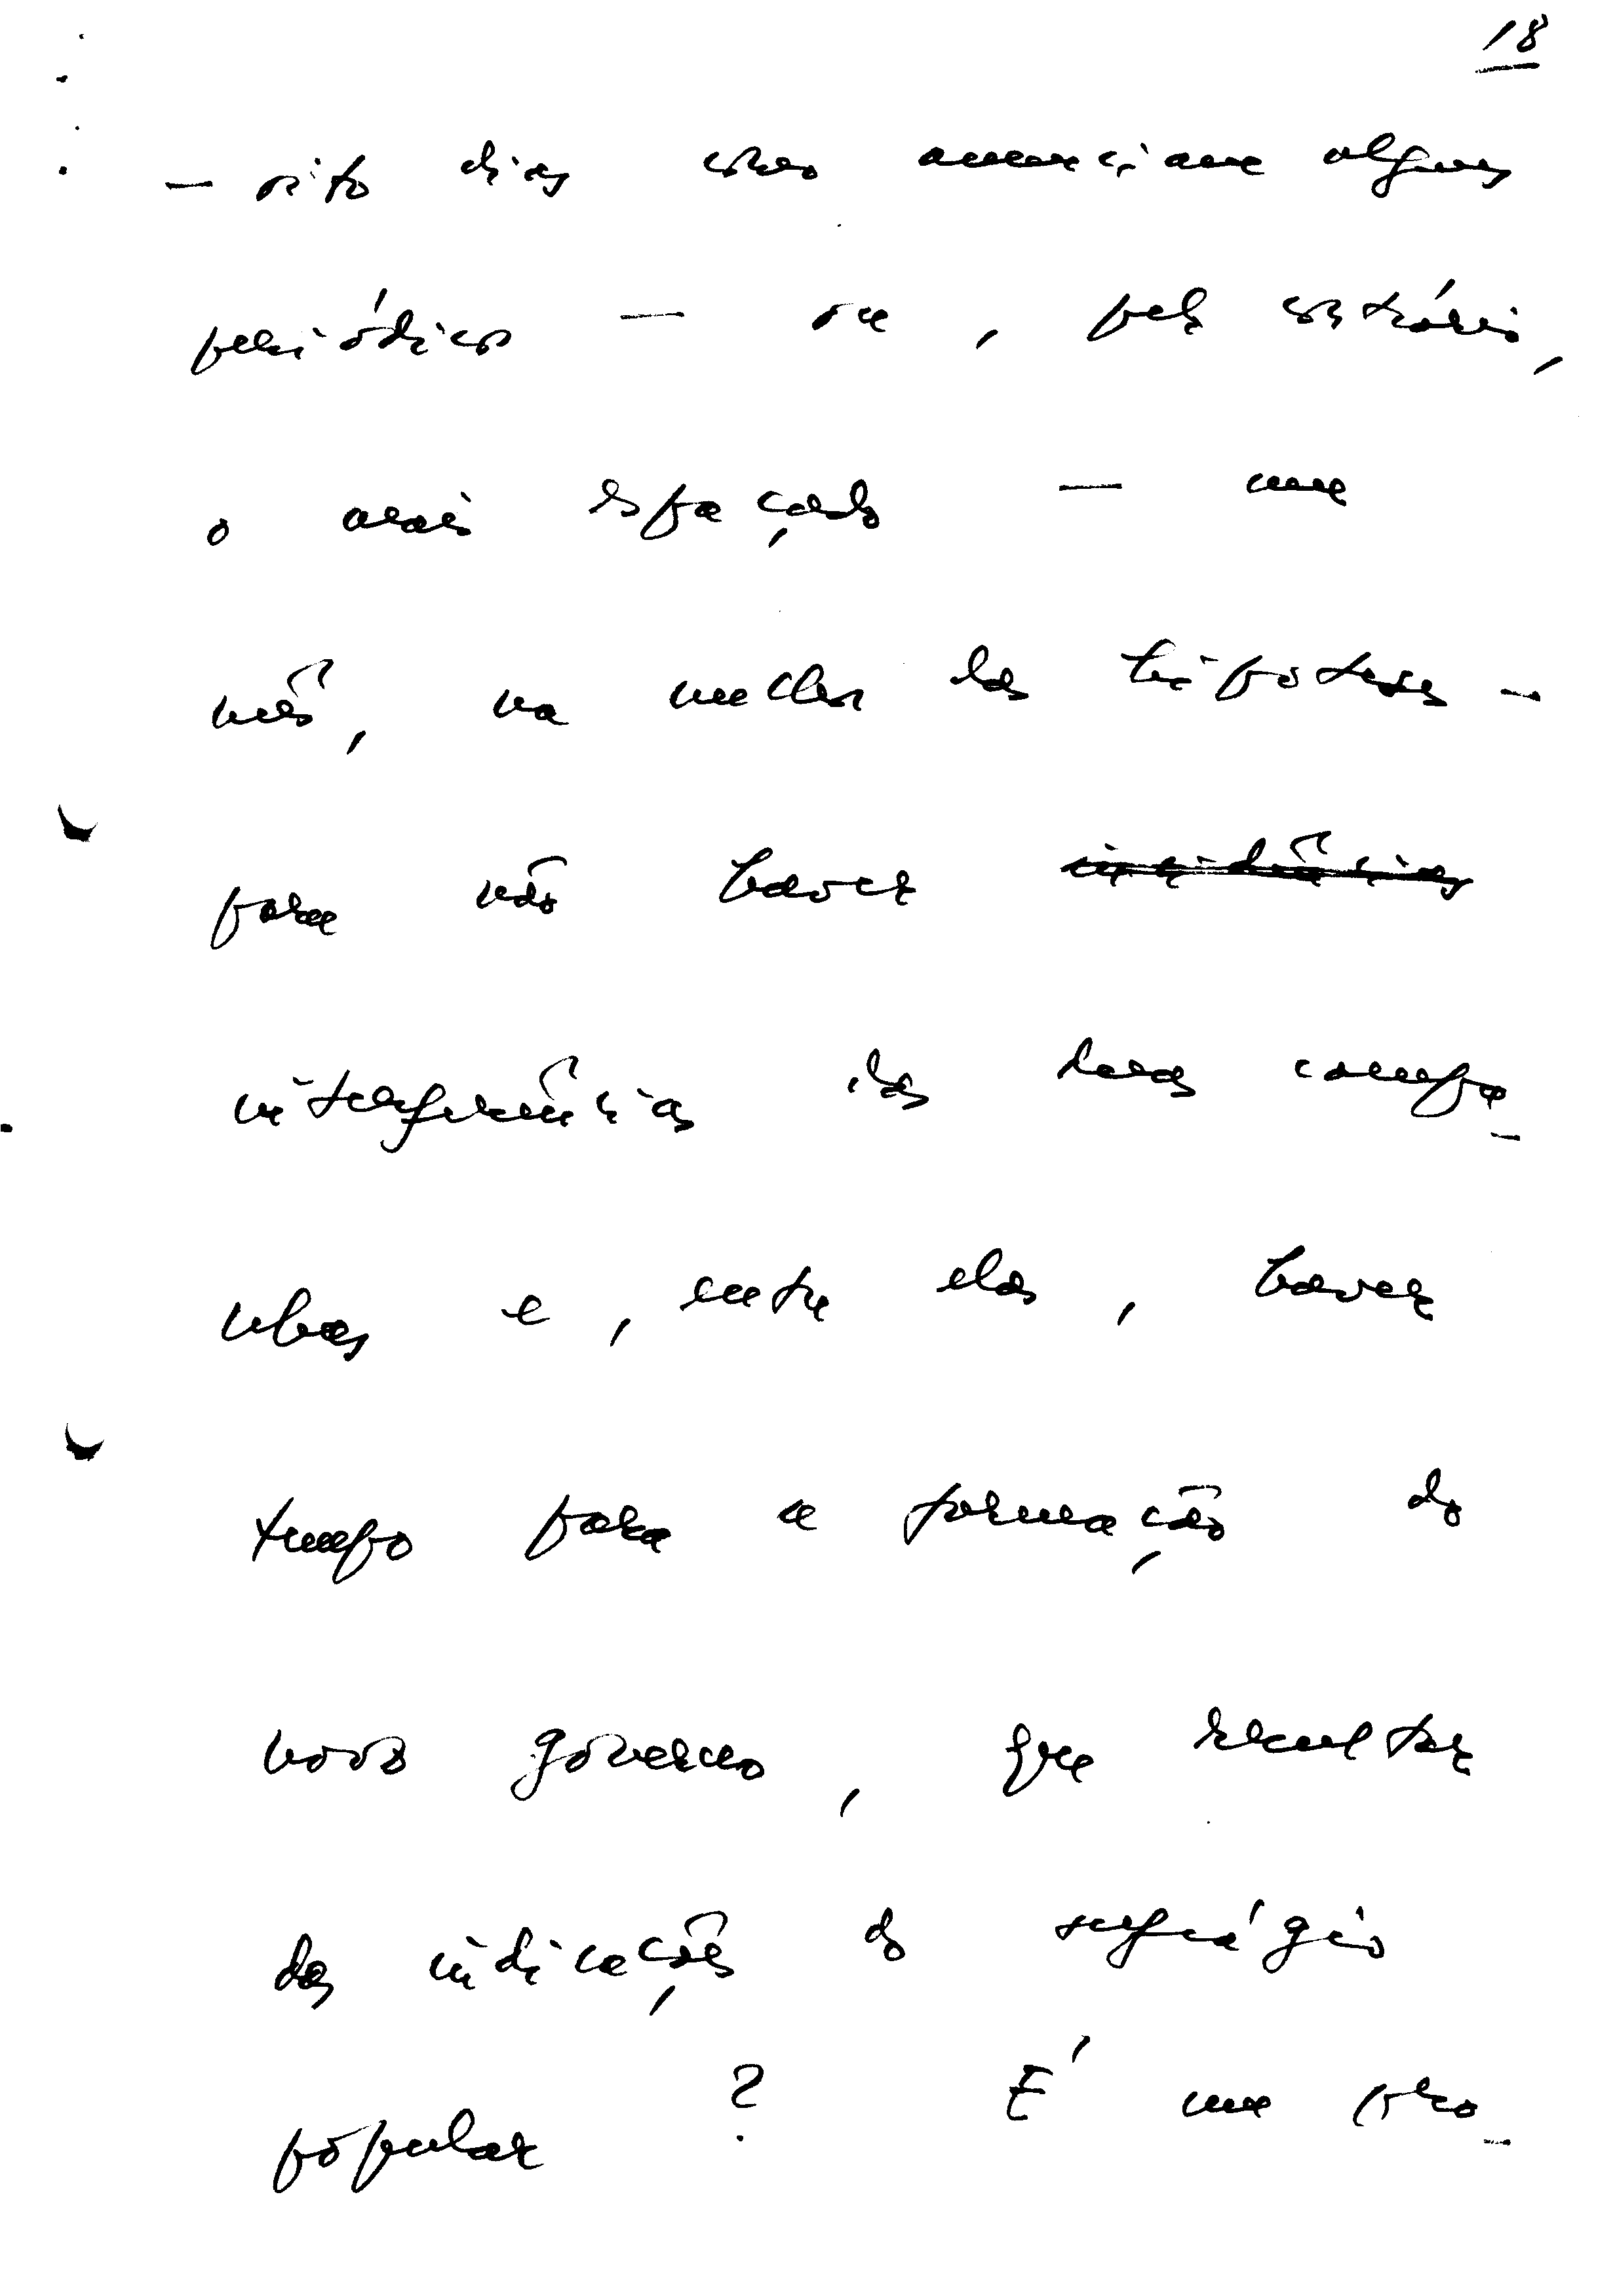 18
— oito dias como anunciam alguns
periódicos — ou, pelo contrário,
o mais espaçado — um
mês, na melhor das hipóteses —
para não haver incidências
interferências das duas campa-
nhas e, entre elas, haver
tempo para a formação do
novo governo, que resultar
das indicações do sufrágio
popular ? É um pro-